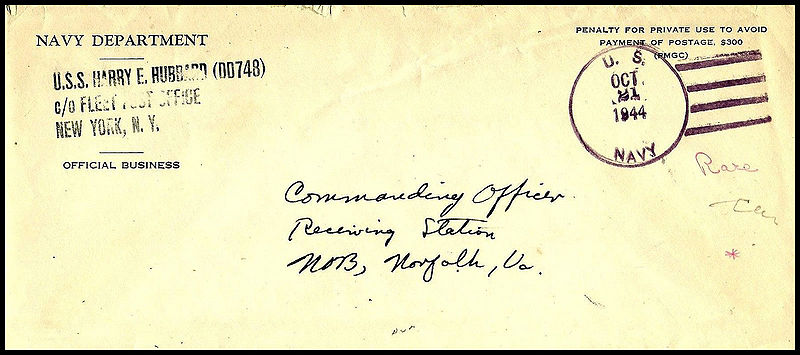 NAVY DEPARTMENT
U.S.S. HARRY E. HUBBARD (DD748)
c/o FLEET POST OFFICE
NEW YORK, N. Y.
OFFICIAL BUSINESS
PENALTY FOR PRIVATE USE TO AVOID
PAYMENT OF POSTAGE, $300
(PMGC)
U. S.
OCT.
21
1944
NAVY
Rare
*
Commanding Officer
Receiving Station
NOB, Norfolk, Va.